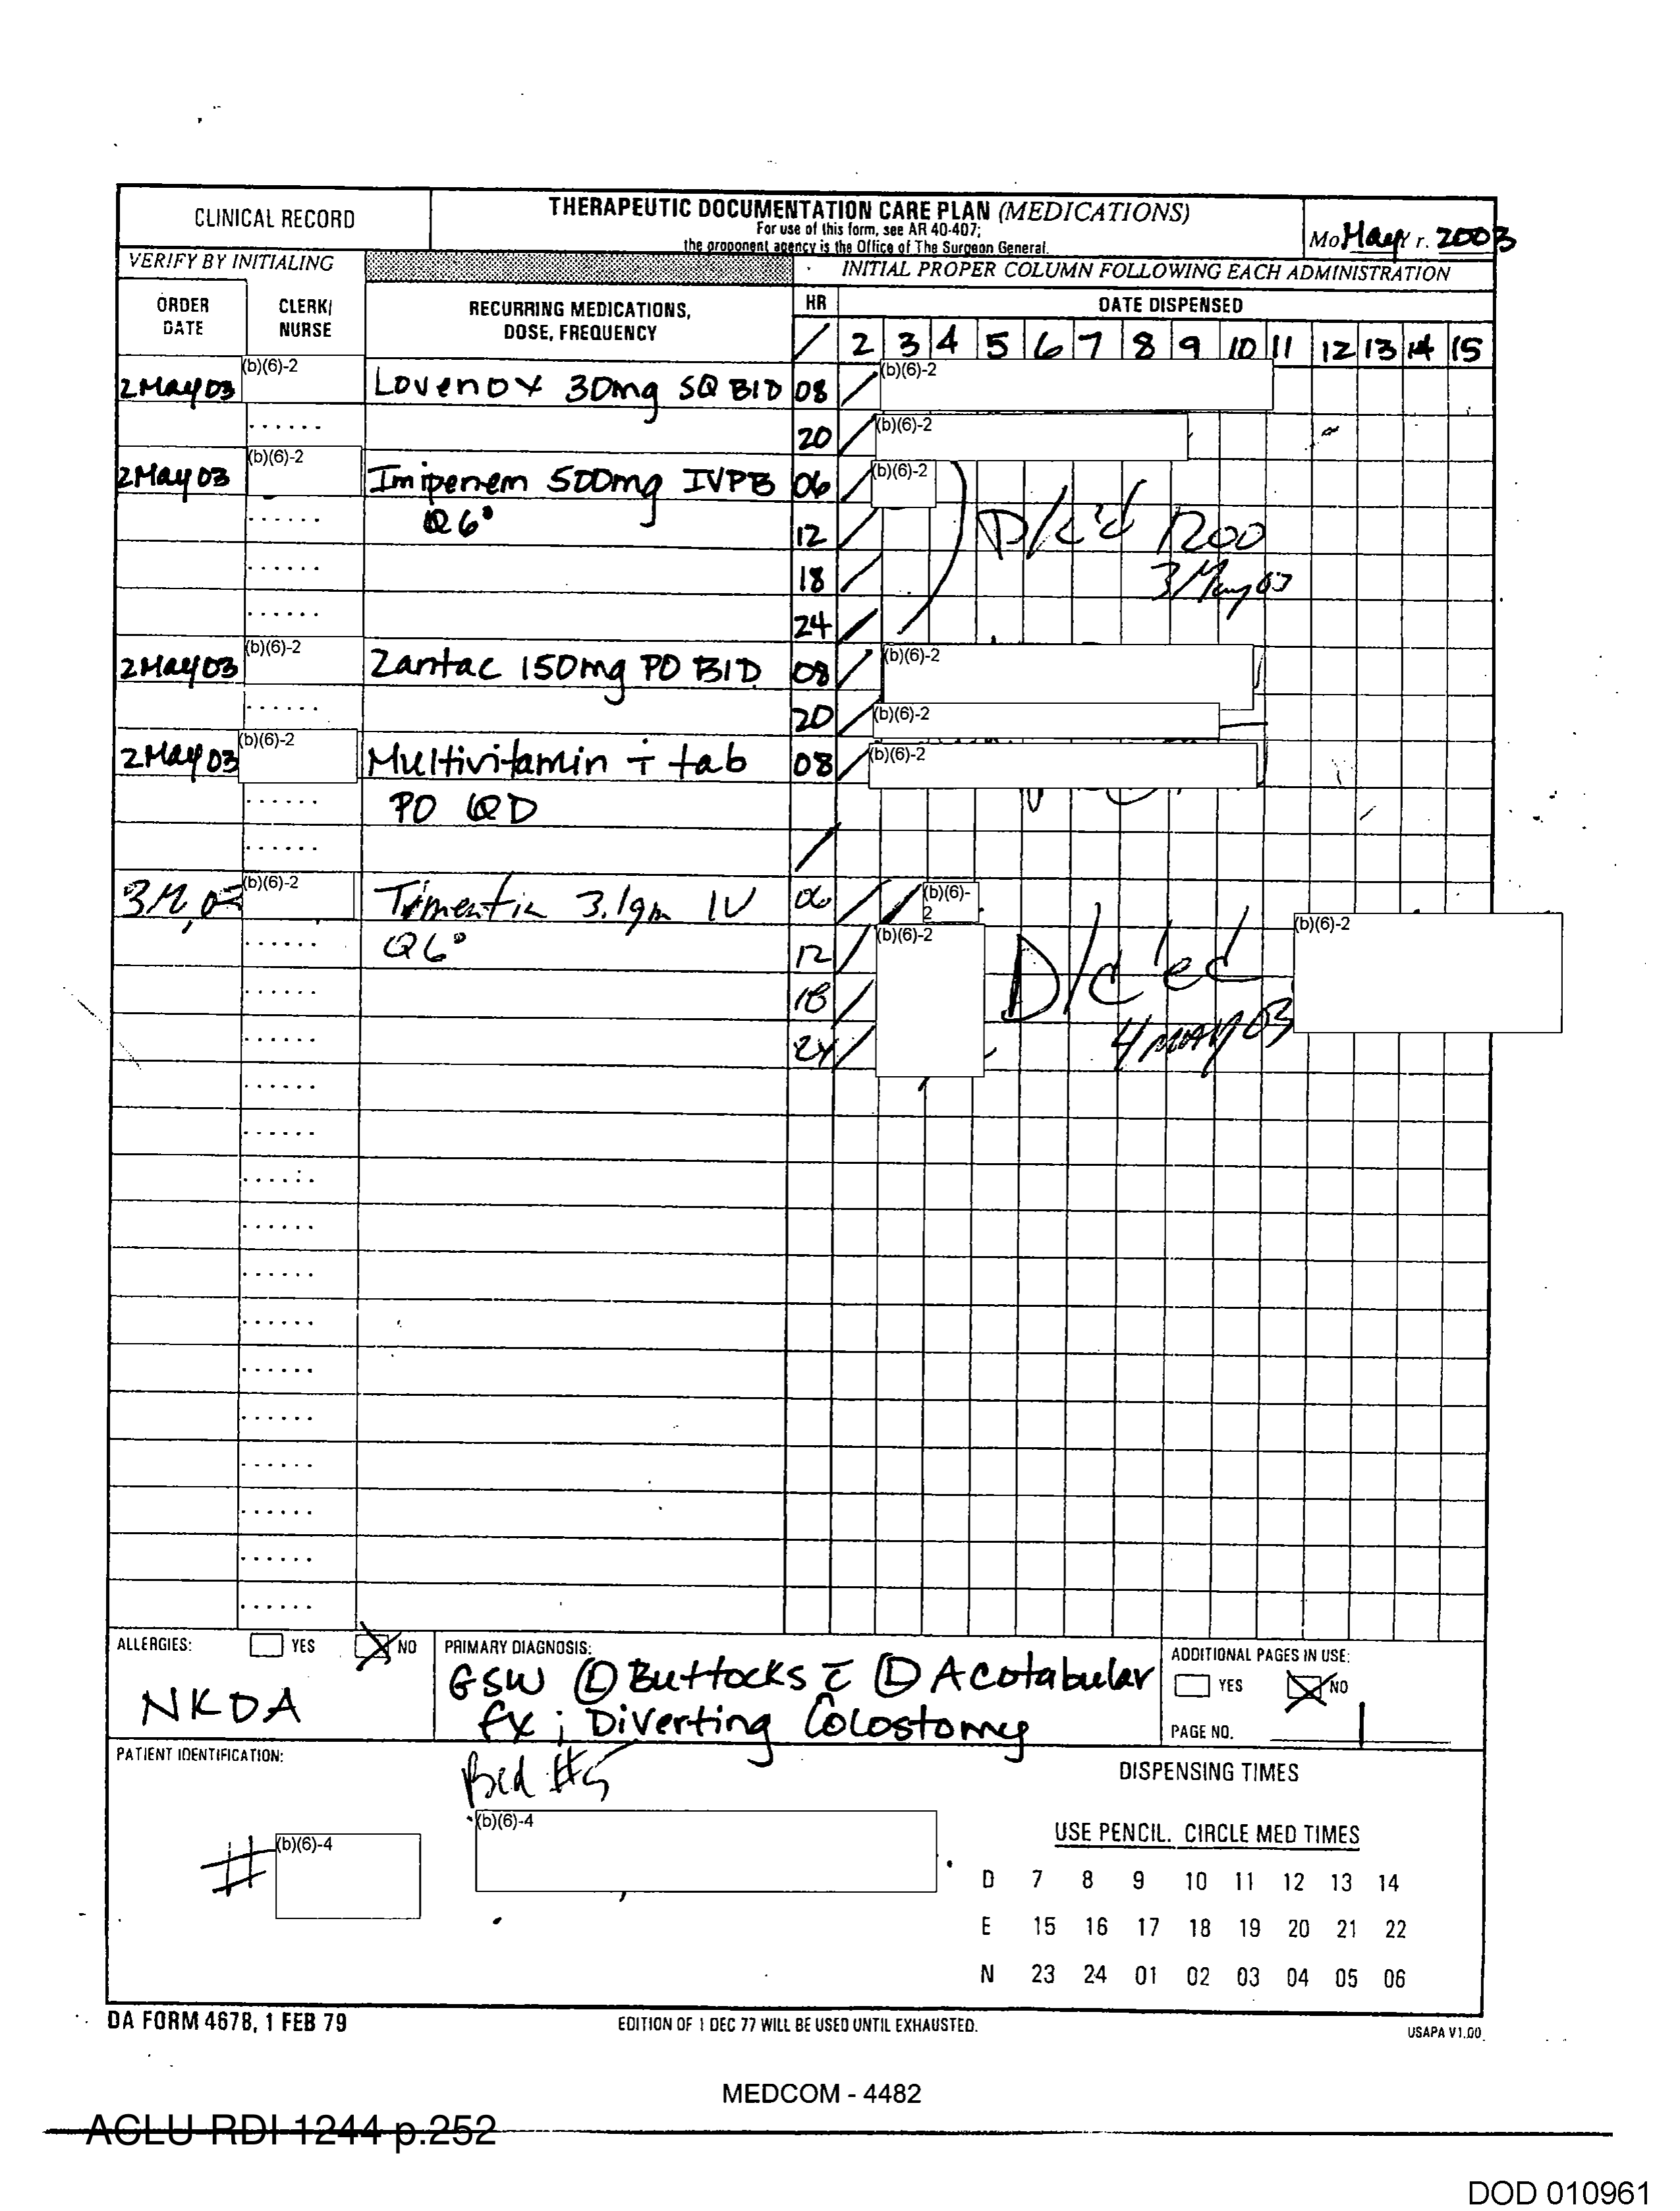 CLINICAL RECORD
THERAPEUTIC DOCUMENTATION CARE PLAN (MEDICATIONS)
For use of this form, see AR 40-407;
the proponent agency is the Office of The Surgeon General.
Mo. May Yr. 2003
VERIFY BY INITIALING
INITIAL PROPER COLUMN FOLLOWING EACH ADMINISTRATION
ORDER DATE
CLERK/ NURSE
RECURRING MEDICATIONS, DOSE, FREQUENCY
HR
DATE DISPENSED
2 3 4 5 6 7 8 9 10 11 12 13 14 15
2 May 03 (b)(6)-2 Lovenox 30mg SQ BID 08 (b)(6)-2
20 (b)(6)-2
2 May 03 (b)(6)-2 Imipenem 500mg IVPB 06 (b)(6)-2
Q6° 12 D/c'd 1200
18 3 May 03
24
2 May 03 (b)(6)-2 Zantac 150mg PO BID 08 (b)(6)-2
20 (b)(6)-2
2 May 03 (b)(6)-2 Multivitamin i tab 08 (b)(6)-2
PO QD
(b)(6)-2 Timentin 3.1gm IV 06 (b)(6)-2
Q6° 12 (b)(6)-2 D/c'ed (b)(6)-2
18 4 MAY 03
24
ALLERGIES: YES NO
NKDA
PRIMARY DIAGNOSIS:
GSW Ⓛ Buttocks c̄ Ⓛ Acotabular
fx; Diverting Colostomy
ADDITIONAL PAGES IN USE:
YES NO
PAGE NO. 1
PATIENT IDENTIFICATION:
Bed #5
# (b)(6)-4
(b)(6)-4
DISPENSING TIMES
USE PENCIL. CIRCLE MED TIMES
D 7 8 9 10 11 12 13 14
E 15 16 17 18 19 20 21 22
N 23 24 01 02 03 04 05 06
DA FORM 4678, 1 FEB 79
EDITION OF 1 DEC 77 WILL BE USED UNTIL EXHAUSTED.
USAPA V1.00
MEDCOM - 4482
ACLU-RDI 1244 p.252
DOD 010961